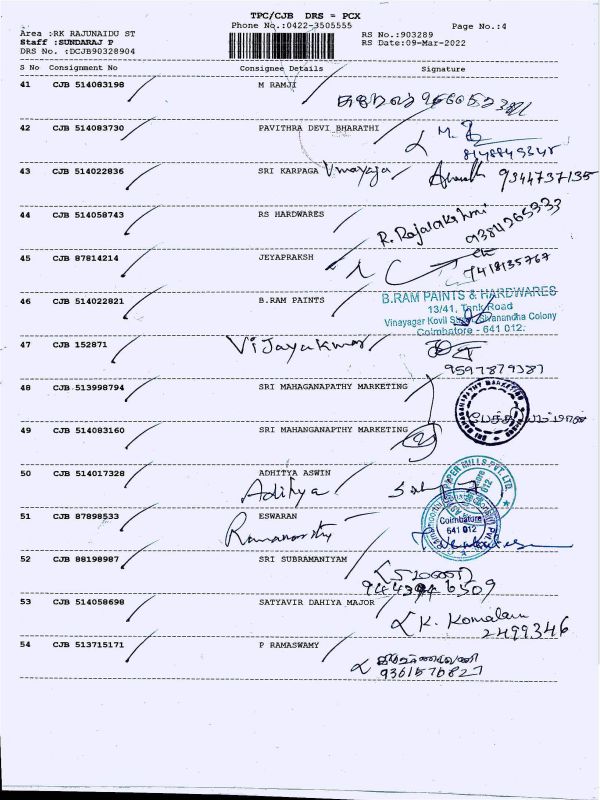 TPC/CJB DRS = PCX
Phone No.:0422-3505555
Page No.:4
Area :RK RAJUNAIDU ST
Staff :SUNDARAJ P
DRS No. :DCJB90328904
RS No.:903289
RS Date:09-Mar-2022
S No Consignment No Consignee Details Signature
41 CJB 514083198 M RAMJI
42 CJB 514083730 PAVITHRA DEVI BHARATHI
8148849348
43 CJB 514022836 SRI KARPAGA Vinayaja 9344737135
44 CJB 514058743 RS HARDWARES
R. Rajalakshmi
9384265933
45 CJB 87814214 JEYAPRAKSH
7418135767
46 CJB 514022821 B.RAM PAINTS
B.RAM PAINTS & HARDWARES
13/41, Tank Road
Vinayager Kovil Street, Sivanandha Colony
Coimbatore - 641 012.
47 CJB 152871 Vijayakumar
9597879387
48 CJB 513998794 SRI MAHAGANAPATHY MARKETING
49 CJB 514083160 SRI MAHANGANAPTHY MARKETING (2)
50 CJB 514017328 ADHITYA ASWIN
Aditya
51 CJB 87898533 ESWARAN
Coimbatore
641 012
52 CJB 88198987 SRI SUBRAMANIYAM
53 CJB 514058698 SATYAVIR DAHIYA MAJOR
K. Komalam
2499346
54 CJB 513715171 P RAMASWAMY
9361575827